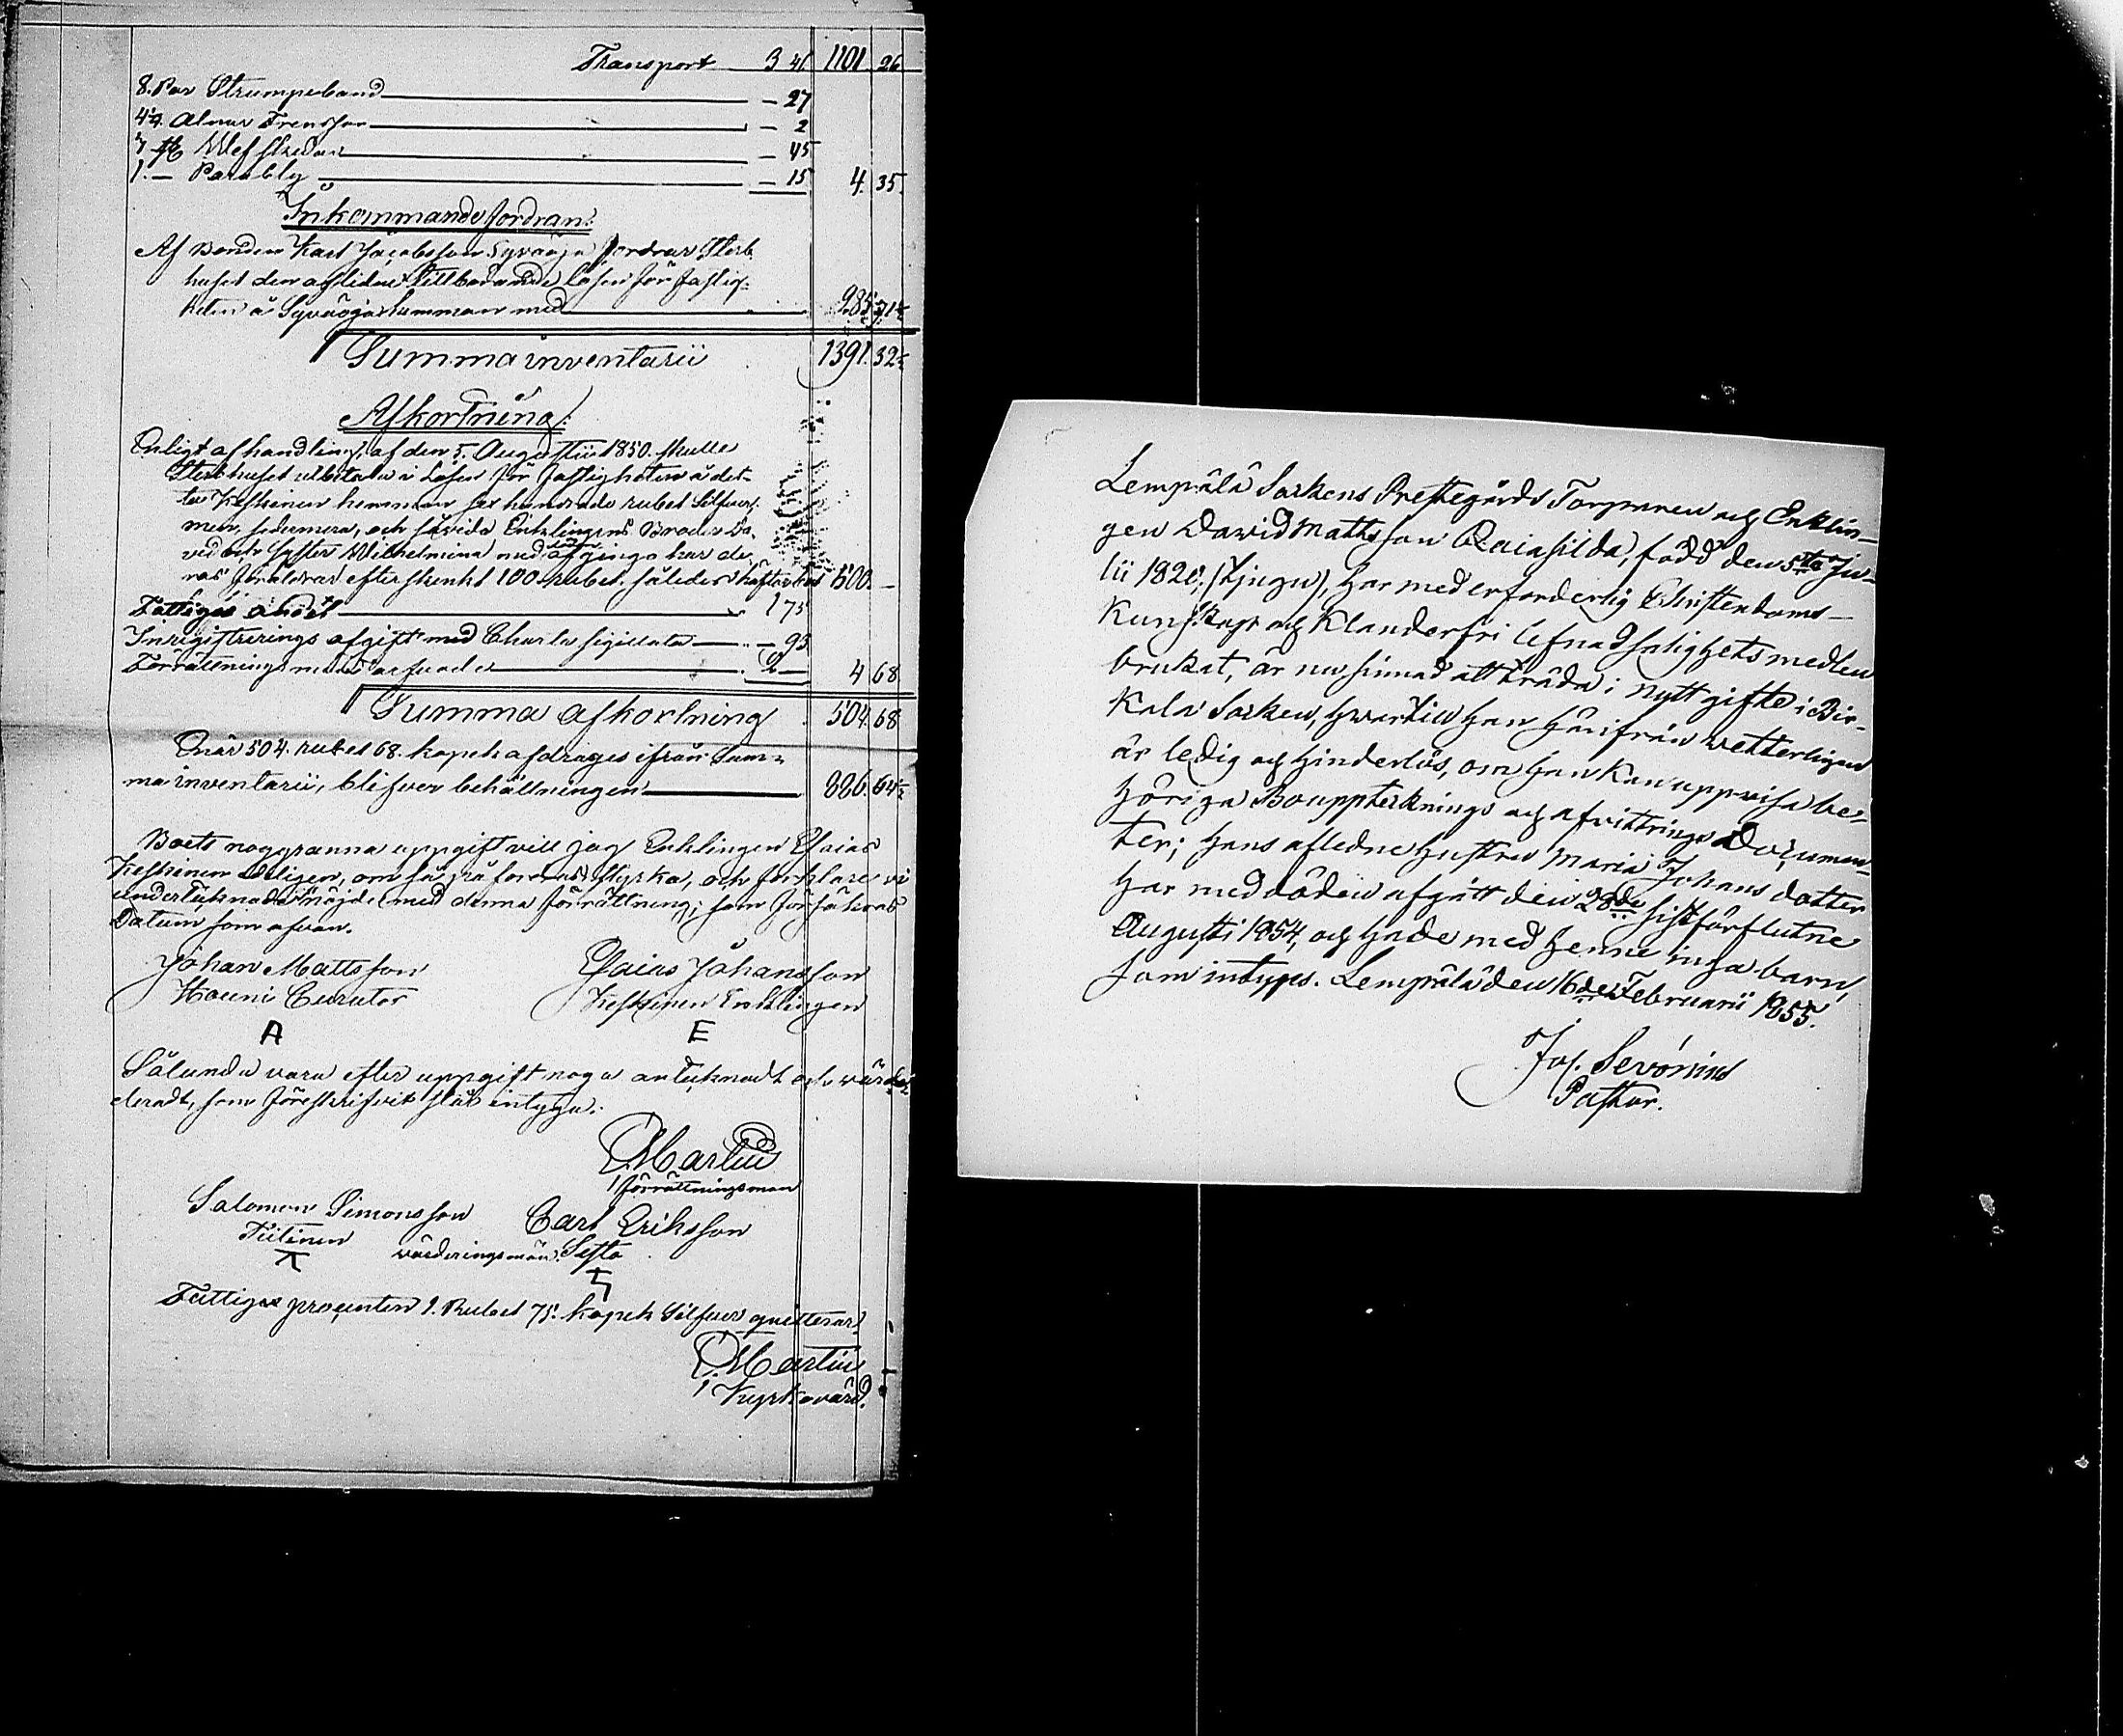 Transport 3 41 1101 26
8. Par Strumpeband — 27
4½. Alnar Fransar — 2
7 st Wefskedar — 45
1. — Parably — 15 4. 35.
Inkommande fordran:
Af Bonden Karl Jacobsson Syvöoja fordrar Sterb
huset den aflidne tillkommande lösen för fastig-
heten å Syvöoja hemman med 285 71½
Summa inventarii 1391. 32½
Afkortning:
Enligt afhandling, af den 5. Augustii 1850. skulle
Sterbhuset utbetala i lösen för fastigheten å det-
ta Keskinen hemman sex hundrade rubel Silfver;
men, sedermera, och såvida Enklingens Broder Da-
vid och Syster Wilhelmina med döden afgingo har de-
ras föräldrar efterskänkt 100 rubel, således häftar boet 500. —
Fattiges andel 1 75
Inregistrerings afgift med Charta sigillata — 93
Förrättningsmannens arfvode 2 — 4 68
Summa afkortning 504. 68
När 504. rubel 68. kopek afdrages ifrån Sum-
ma inventarii, blifver behållningen 886. 64½
Boets noggranna uppgift vill jag Enklingen Esaias
Keskinen edligen, om så påfordras styrka, och förklare vi
undertecknade nöjde med denna förrättning; som försäkras
Datum som ofvan.
Johan Mattsson Esaias Johansson
Houni Curator Keskinen Enklingen
A E
Sålunda vara efter uppgift noga antecknadt och värde-
deradt, som föreskrifvit står intyga.
Martin
förrättningsman
Salomon Simonsson Carl Eriksson
Tiitinen värderingsmän. Sesta
Fattiges procenten 1. Rubel 75. kopek Silfver qvitterar
Martin
Kyrkovärd.
Lempälä Sockens Prestegårds Torparen och Enklin-
gen David Mathsson Raiasilda, född den 5te Ju-
lii 1820, (tjugu), har med erforderlig Christendoms-
Kunskap och Klanderfri lefnad salighetsmedlen
brukat, är nu sinnad att träda i nytt gifte i Bir-
kala Socken, hwartill han härifrån wetterligen
är ledig och hinderlös, om han kan uppwisa be-
höriga Bouppteknings och afvittrings Documen-
ter; hans aflidne hustru Maria Johans dotter
har med döden afgått den 28de sistförflutne
Augusti 1854, och hade med henne inga barn,
som intygas. Lempälä den 16de Februarii 1855.
Jos. Sevónius
Pastor.